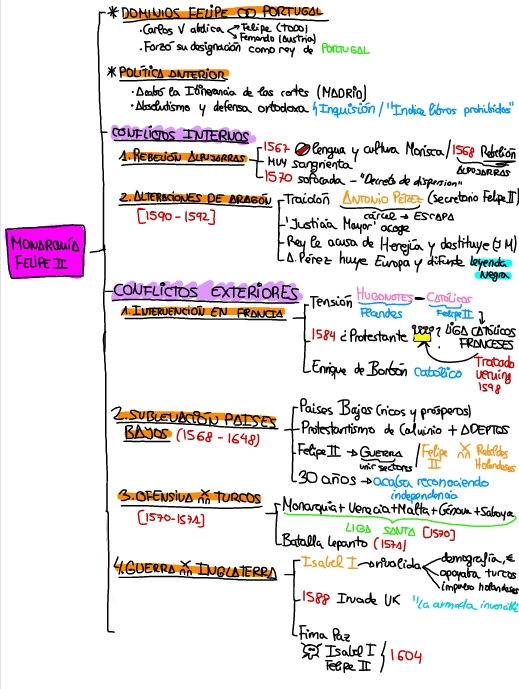 * DOMINIOS FELIPE PORTUGAL
· Carlos V abdica Felipe (TODO)
Fernando (Austria)
· Forzó su designación como rey de PORTUGAL
* POLÍTICA ANTERIOR
· Acabó la Itinerancia de las cortes (MADRID)
· Absolutismo y defensa ortodoxa Inquisión / "Indice libros prohibidos"
CONFLICTOS INTERNOS
1. REBELIÓN ALPUJARRAS
1567 lengua y cultura Morisca / 1568 Rebelión
ALPUJARRAS
MUY sangrienta
1570 sofocada - "Decreto de dispersion"
2. ALTERACIONES DE ARAGÓN
[1590-1592]
Traición ANTONIO PÉREZ (secretario Felipe II)
cárcel → ESCAPA
'Justicia Mayor' acoge
Rey le acusa de Herejía y destituye (J M)
A. Pérez huye Europa y difunde leyenda
Negra
MONARQUÍA
FELIPE II
CONFLICTOS EXTERIORES
1. INTERVENCIÓN EN FRANCIA
Tensión HUGONOTES - CATÓLICOS
Flandes Felipe II
1584 ¿Protestante ? LIGA CATÓLICOS
FRANCESES
Enrique de Borbón católico
Tratado
Vervins
1598
2. SUBLEVACIÓN PAISES
BAJOS (1568-1648)
Paises Bajos (ricos y prósperos)
Protestantismo de Calvinio + ADEPTOS
Felipe II → Guerra / Felipe II Rebeldes
Holandeses
unir sectores
30 años → acaba reconociendo
independencia
3. OFENSIVA TURCOS
[1570-1571]
Monarquia + Venecia + Malta + Génova + Saboya
LIGA SANTA [1570]
Batalla Lepanto (1571)
4. GUERRA INGLATERRA
Isabel I → rivalidad
demografía, €
apoyaba turcos
imperio holandeses
1588 Invade UK "La armada invencible"
Firma Paz
Isabel I
Felipe II
1604